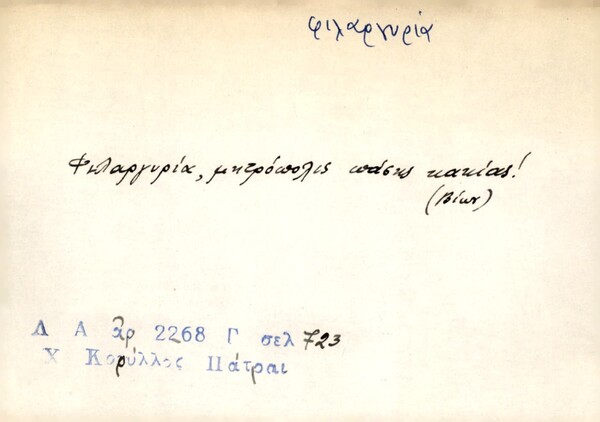 φιλαργυρία
Φιλαργυρία, μητρόπολις πάσης κακίας!
(Βίων)
Λ Α ἀρ 2268 Γ σελ 723
Χ Κορύλλος Πάτραι